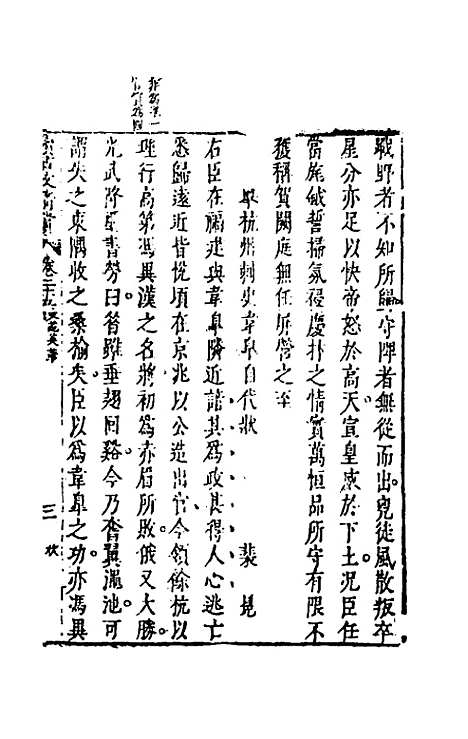 戰野者不知所歸守陴者無從而出兇徒風散叛卒
星分亦足以快帝怒於高天宣皇感於下土況臣任
當旄鉞誓掃氛祲慶抃之情實萬恒品所守有限不
獲稱賀闕庭無任屏營之至
舉杭州刺史韋皐自代狀 裴𡷫
右臣在福建與韋皐隣近諳其爲政甚得人心逃亡
悉歸遠近皆悅頃在京兆以公造出官今領餘杭以
理行高第馮異漢之名將初爲赤眉所敗俄又大勝
光武降璽書勞曰答雖垂翅回谿今乃奮翼澠池可
謂失之東隅收之桑榆矣臣以爲韋皐之功亦馮異
卷二十五 文苑英華 三 狀